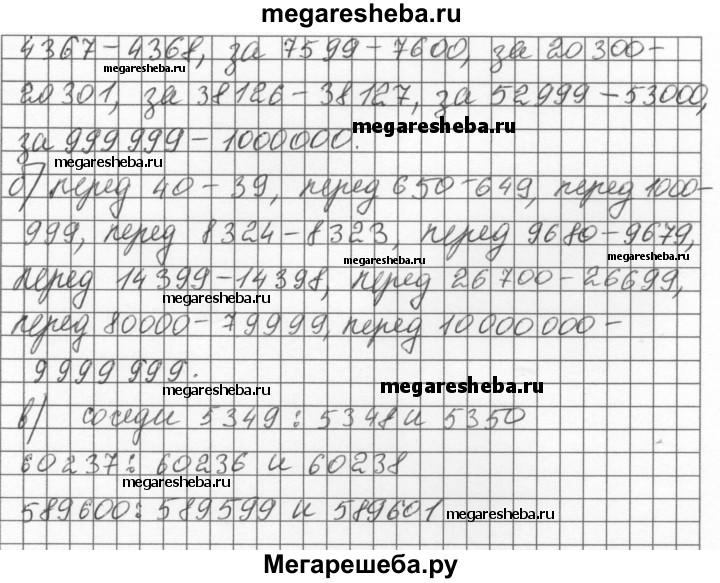 megaresheba.ru
4367-4368, за 7599-7600, за 20300-
megaresheba.ru
20301, за 38126-38127, за 52999-53000,
за 999999-1000000.
megaresheba.ru
megaresheba.ru
б) перед 40-39, перед 650-649, перед 1000-
999, перед 8324-8323, перед 9680-9679,
megaresheba.ru
megaresheba.ru
перед 14399-14398, перед 26700-26699,
megaresheba.ru
перед 80000-79999, перед 10000000-
9999999.
megaresheba.ru
megaresheba.ru
в) соседи 5349: 5348 и 5350
60237: 60236 и 60238
megaresheba.ru
589600: 589599 и 589601
megaresheba.ru
Мегарешеба.ру